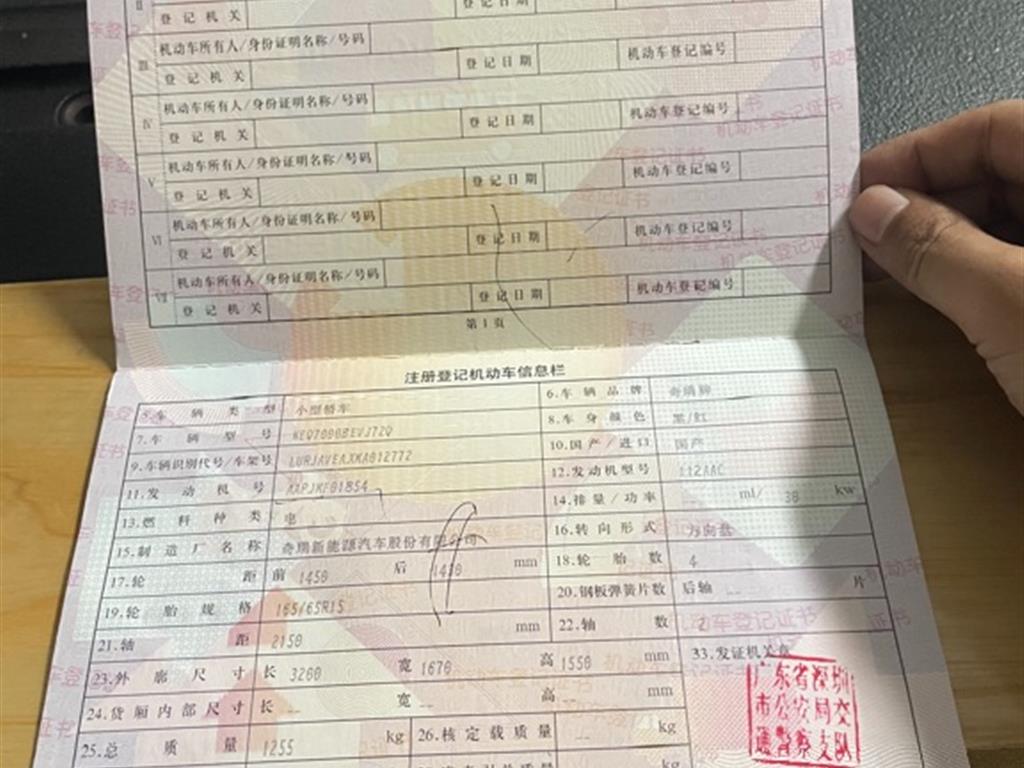 II
登记机关 登记日期
III 机动车所有人/身份证明名称/号码 机动车登记编号
登记机关 登记日期
IV 机动车所有人/身份证明名称/号码 机动车登记编号
登记机关 登记日期
V 机动车所有人/身份证明名称/号码 机动车登记编号
登记机关 登记日期
VI 机动车所有人/身份证明名称/号码 机动车登记编号
登记机关 登记日期
VII 机动车所有人/身份证明名称/号码 机动车登记编号
登记机关 登记日期
第1页
注册登记机动车信息栏
5.车辆类型 小型轿车 6.车辆品牌 奇瑞牌
7.车辆型号 NEQ7000BEVJ72Q 8.车身颜色 黑/红
9.车辆识别代号/车架号 LURJAVEAXMA012772 10.国产/进口 国产
11.发动机号 12.发动机型号
13.燃料种类 电 14.排量/功率 ml/ 30 kw
15.制造厂名称 奇瑞新能源汽车股份有限公司 16.转向形式 方向盘
17.轮距 前 1450 后 mm 18.轮胎数 4
19.轮胎规格 165/65R15 20.钢板弹簧片数 后轴 -- 片
21.轴距 2150 mm 22.轴数 2
23.外廓尺寸 长 3200 宽 1670 高 1550 mm 33.发证机关章
24.货厢内部尺寸 长 -- 宽 -- 高 -- mm
25.总质量 1255 kg 26.核定载质量 -- kg
广东省深圳
市公安局交
通警察支队